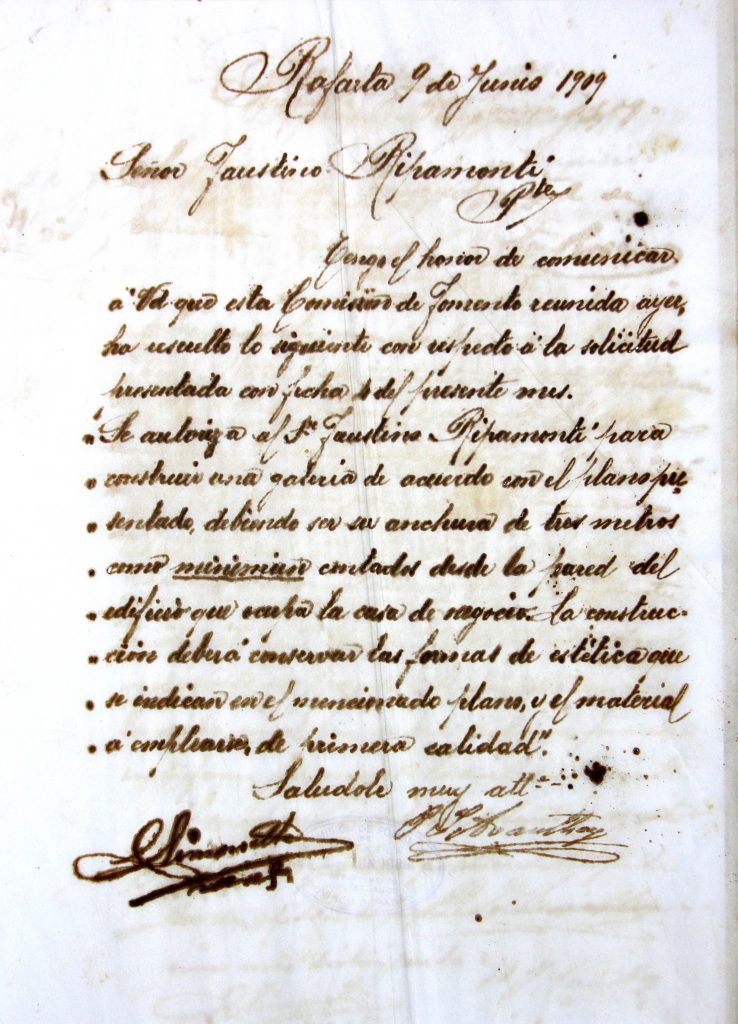 Rafaela 9 de Junio 1909
Señor Faustino Ripamonti
Pte
Tengo el honor de comunicar
á Vd que esta Comisión de Fomento reunida ayer,
ha resuelto lo siguiente con respecto á la solicitud
presentada con fecha 4 del presente mes.
"Se autoriza al Sr. Faustino Ripamonti para
" construir una galeria de acuerdo con el plano pre
" sentado, debiendo ser su anchura de tres metros
" como minimun contados desde la pared del
" edificio que ocupa la casa de negocio. La construc-
" ción deberá conservar las formas de estética que
" se indican en el mencionado plano, y el material
" á emplearse, de primera calidad".
Saludole muy atte